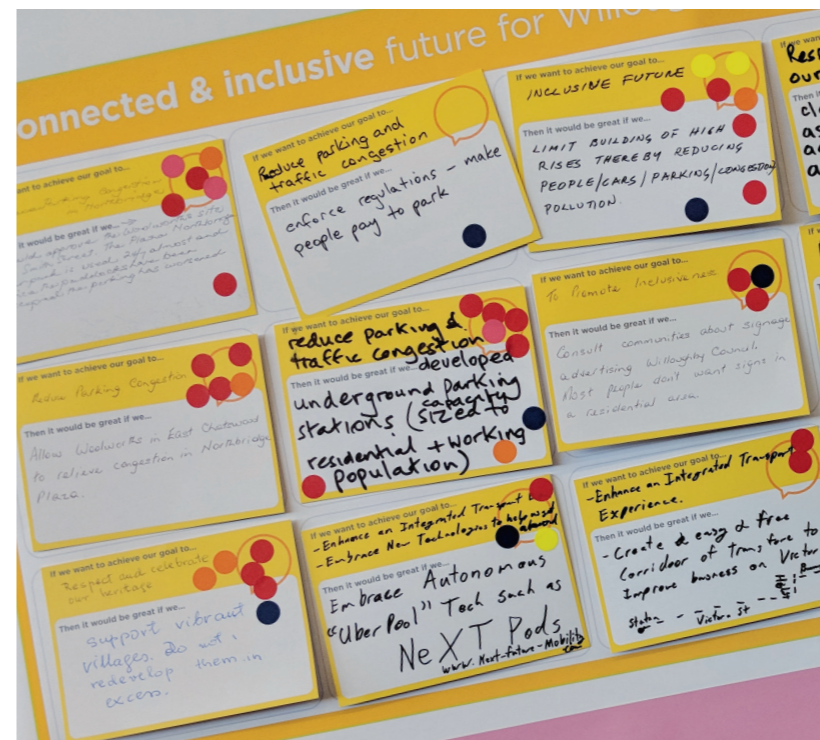 onnected & inclusive future for Willoug
want to achieve our goal to...
Parking Congestion
in Northbridge
it would be great if we...
approve the Woolworths site
Smith Street. The Plaza Northbridge
is used
the parking has worsened
If we want to achieve our goal to...
Reduce parking and
traffic congestion
Then it would be great if we...
enforce regulations - make
people pay to park
If we want to achieve our goal to...
INCLUSIVE FUTURE
Then it would be great if we...
LIMIT BUILDING OF HIGH
RISES THEREBY REDUCING
PEOPLE/CARS/PARKING/CONGESTION
POLLUTION.
If we wan
Res
our
Then it
cl
as
a
a
If we want to achieve our goal to...
Reduce Parking Congestion
Then it would be great if we...
Allow Woolworths in East Chatswood
to relieve congestion in Northbridge
Plaza.
If we want to achieve our goal to...
reduce parking &
traffic congestion
Then it would be great if we...
developed
underground parking
stations (capacity
sized to
residential + working
population)
If we want to achieve our goal to...
To Promote Inclusiveness
Then it would be great if we...
Consult communities about signage
advertising Willoughby Council.
Most people don't want signs in
a residential area.
If w
If we want to achieve our goal to...
Respect and celebrate
our heritage
Then it would be great if we...
support vibrant
villages. Do not
redevelop them in
excess.
If we want to achieve our goal to...
- Enhance an Integrated Transport
- Embrace New Technologies to help
Then it would be great if we...
Embrace Autonomous
"UberPool" Tech such as
NeXT Pods
www.Next-future-Mobility
If we want to achieve our goal to...
- Enhance an Integrated Transport
Experience.
Then it would be great if we...
- Create & easy & free
Corridor of transfore to
Improve business on Victor
Station
Victoria St